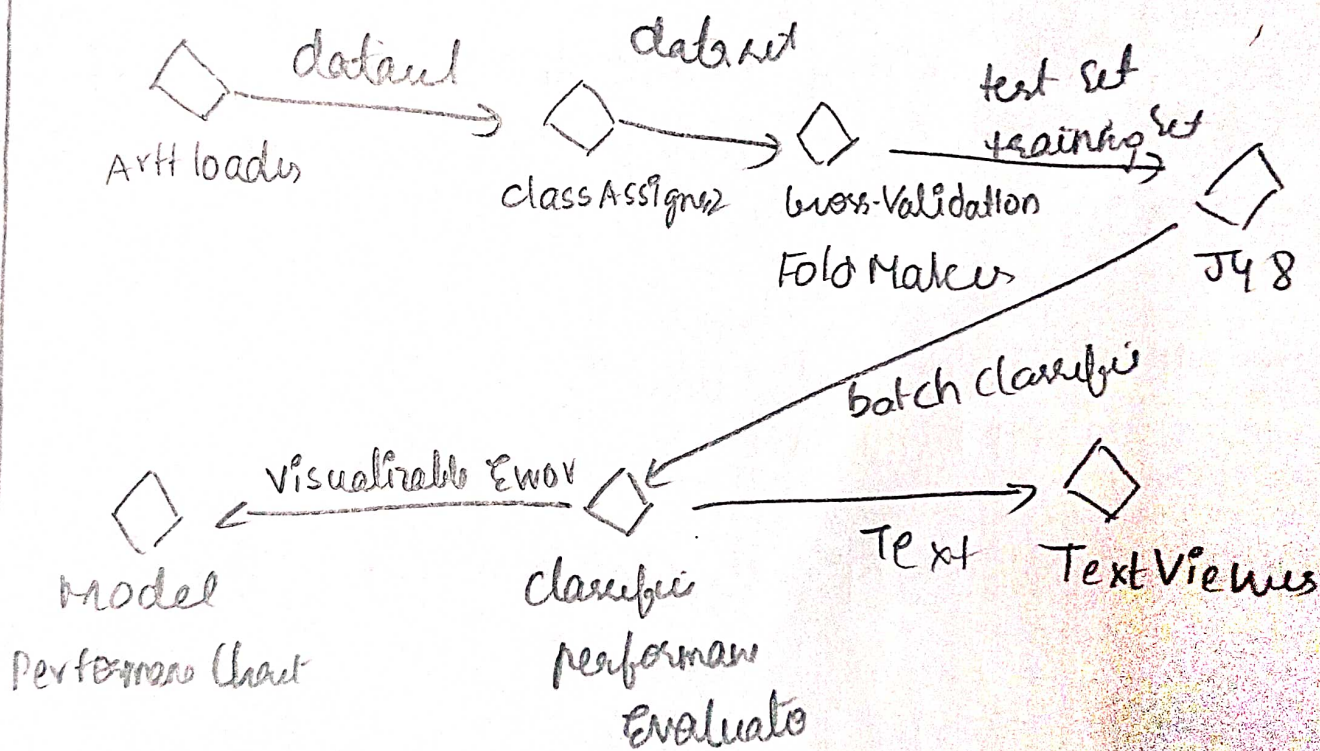 dataset
dataset
test set
training set
Arff loader
class Assigner
Cross-Validation
Fold Maker
J48
batch Classifier
Visualizable Error
Text
Text Viewer
Model
Performance Chart
Classifier
performance
Evaluator